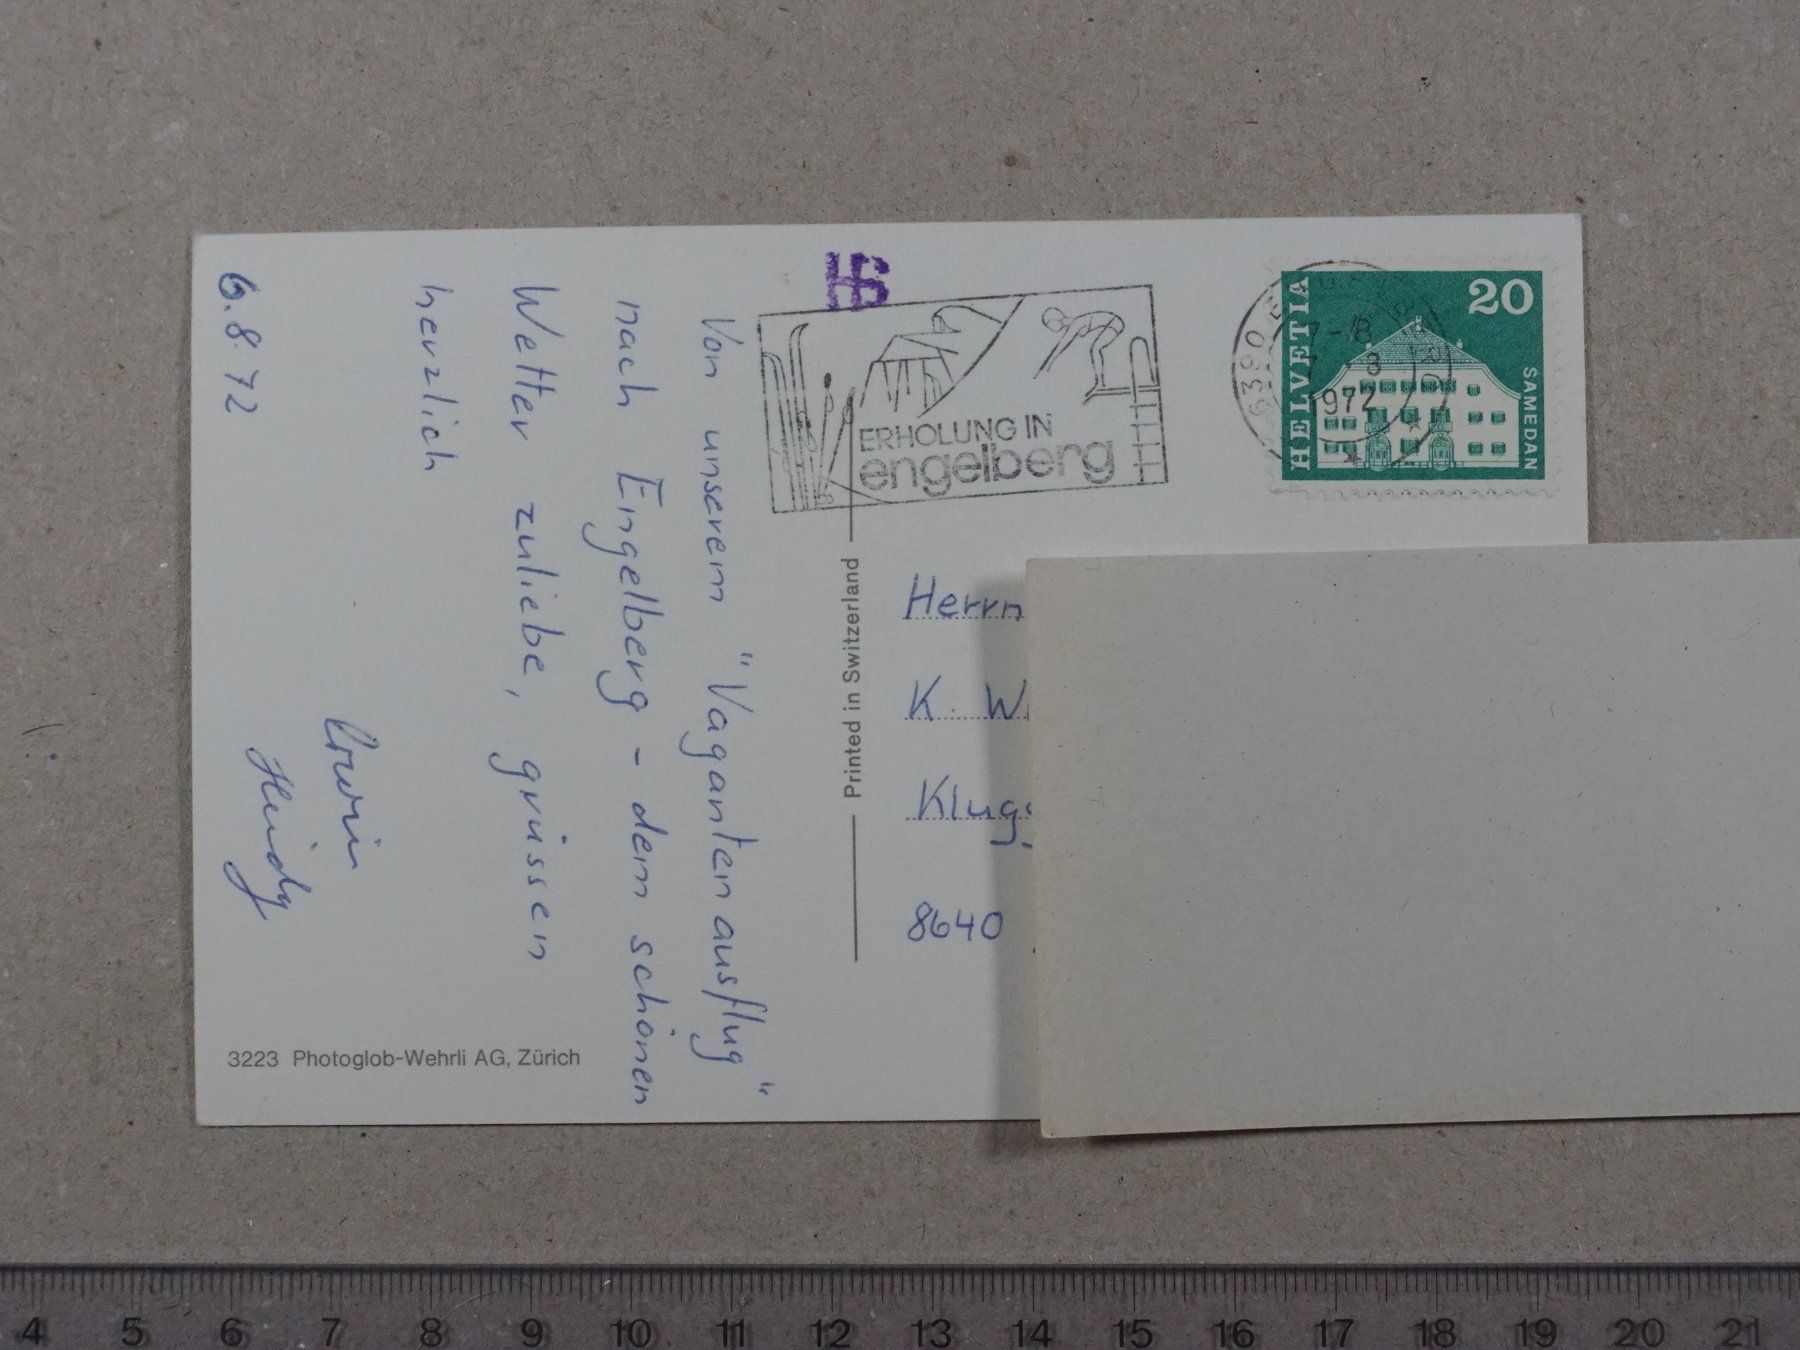 Von unserem "Vagantenausflug"
nach Engelberg - dem schönen
Wetter zuliebe, grüssen
herzlich
Heidy
6.8.72
3223 Photoglob-Wehrli AG, Zürich
Printed in Switzerland
ERHOLUNG IN
engelberg
6390
7-8
1972
HELVETIA
20
SAMEDAN
Herrn
K. W
Klug
8640
4 5 6 7 8 9 10 11 12 13 14 15 16 17 18 19 20 21